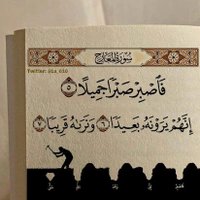 سُورَةُ المَعَارِجِ
فَاصْبِرْ صَبْرًا جَمِيلًا ٥
إِنَّهُمْ يَرَوْنَهُ بَعِيدًا ٦ وَنَرَاهُ قَرِيبًا ٧